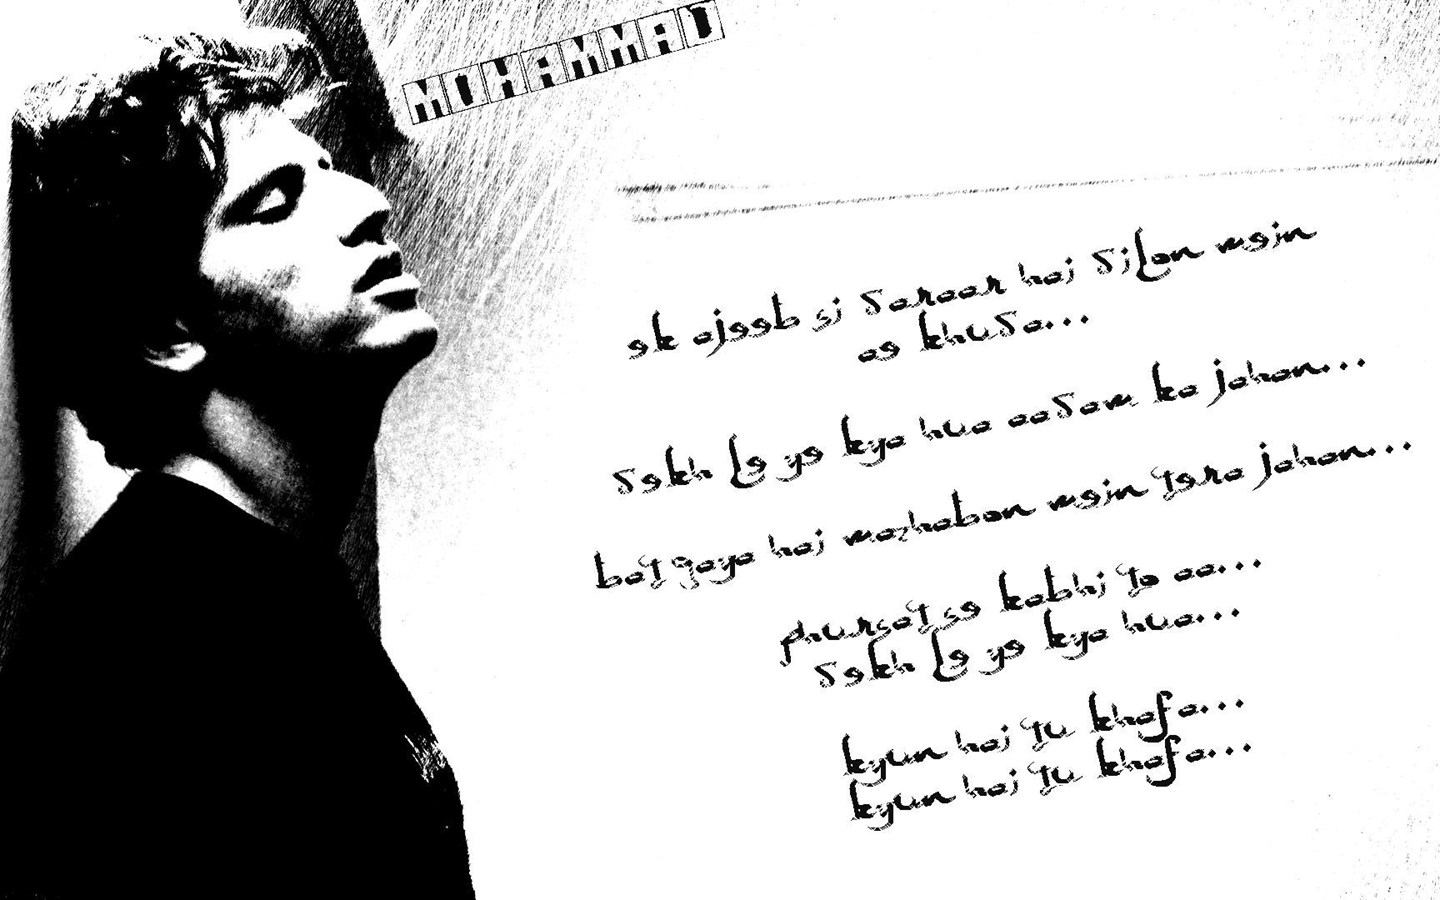 MOHAMMAD
ek ajeeb si daraar hai dilon mein
ae khuda...
dekh le ye kya hua aadam ka jahan...
bat gaya hai mazhabon mein tera jahan...
phursat se kabhi to aa...
dekh le ye kya hua...
kyun hai tu khafa...
kyun hai tu khafa...